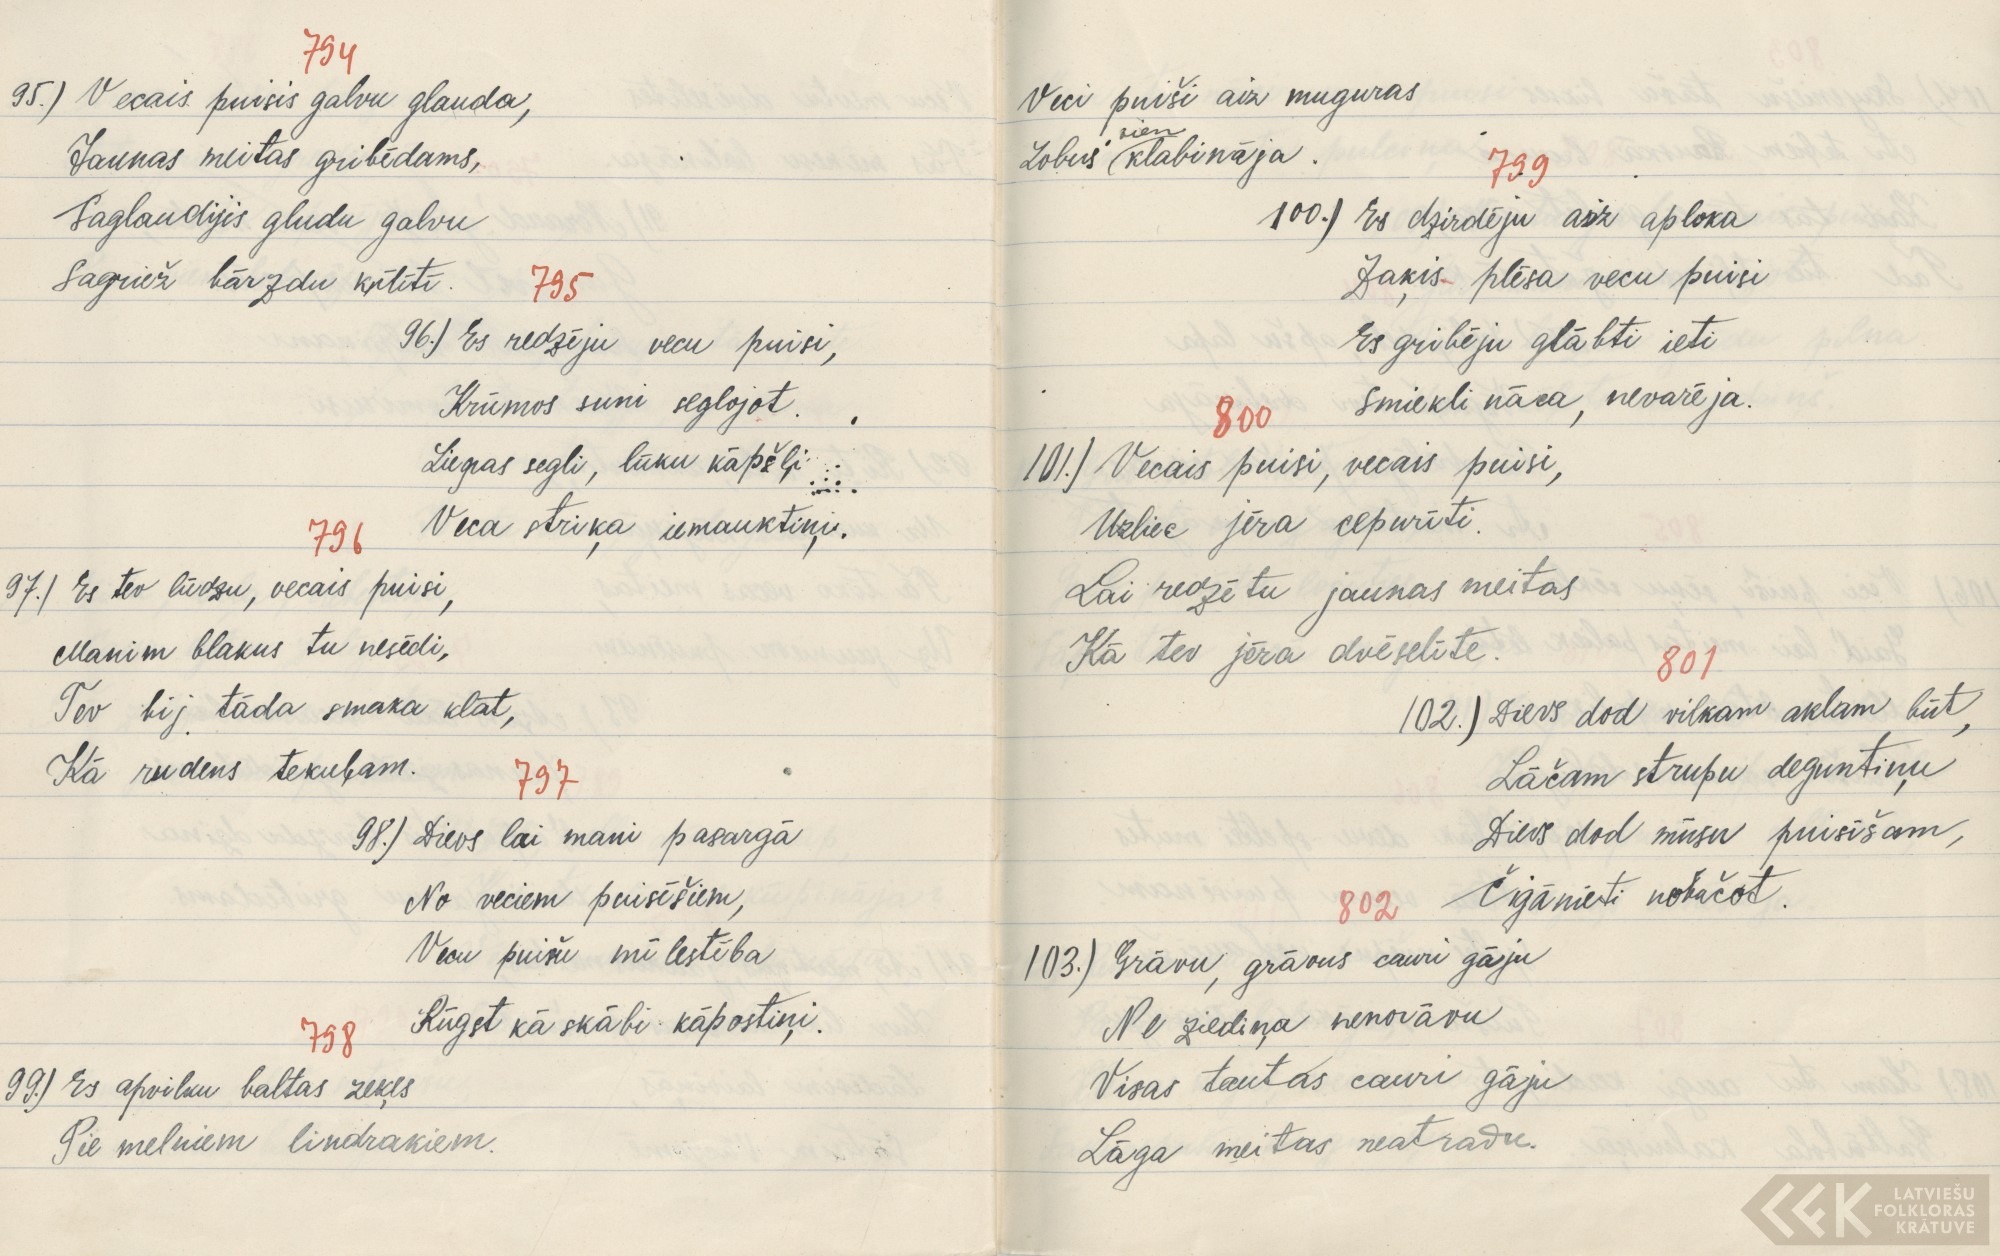 794
95.) Vecais puisis galvu glauda,
Jaunas meitas gribēdams,
Saglaudijis gludu galvu
Sagriež bārzdu kŗītīti.
795
96.) Es redzēju vecu puisi,
Krūmos suni seglojot.
Liepas segli, lūku kāpšļi
Veca striķa iemauktiņi.
796
97.) Es tev lūdzu, vecais puisi,
Manim blakus tu nesēdi,
Tev bij tāda smaka klāt,
Kā rudens tekuļam.
797
98.) Dievs lai mani pasargā
No veciem puisīšiem,
Vecu puišu mīlestība
Rūgst kā skābi kāpostiņi.
798
99.) Es apvilku baltas zeķes
Pie melniem lindrakiem.
Veci puiši aiz muguras
Zobus vien klabināja.
799
100.) Es dzirdēju aiz aploka
Zaķis plēsa vecu puisi
Es gribēju glābti ieti
Smiekli nāca, nevarēja.
800
101.) Vecais puisi, vecais puisi,
Uzliec jēra cepurīti.
Lai redzētu jaunas meitas
Kā tev jēra dvēselīte.
801
102.) Dievs dod vilkam aklam būt,
Lāčam strupu deguntiņu
Dievs dod mūsu puisīšam,
Čigānieti nobučot.
802
103.) Grāvu, grāvus cauri gāju
Ne ziediņa nenorāvu
Visas tautas cauri gāju
Lāga meitas neatradu.
LATVIEŠU
FOLKLORAS
KRĀTUVE